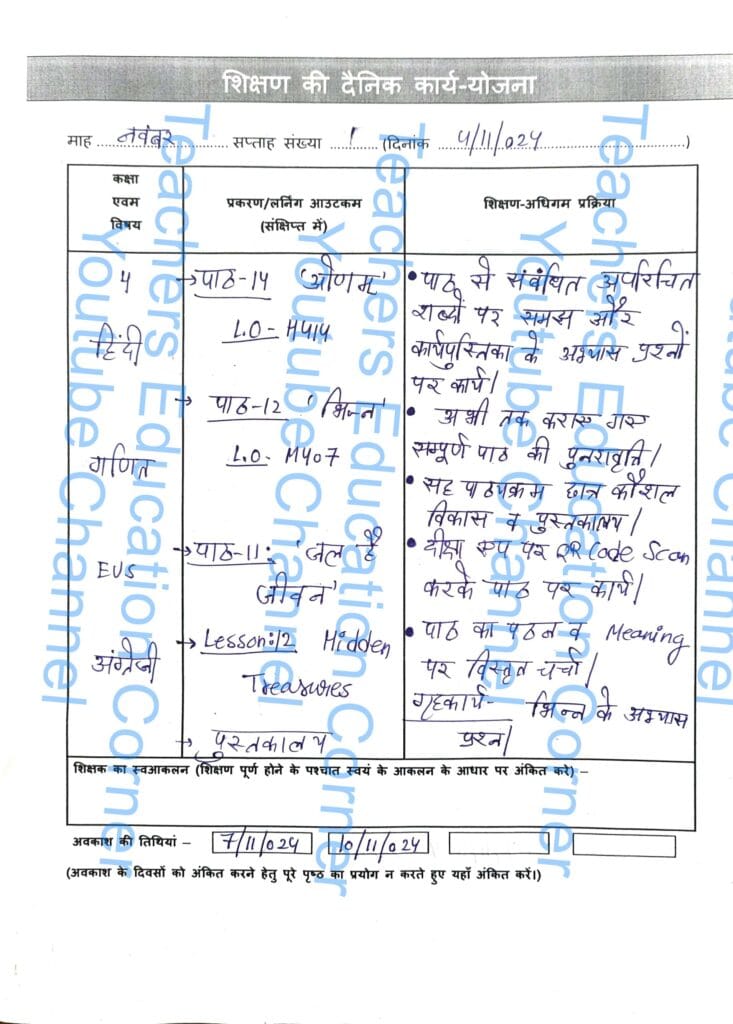 शिक्षण की दैनिक कार्य-योजना
माह नवंबर सप्ताह संख्या 1 (दिनांक 4/11/024)
कक्षा एवम विषय
प्रकरण/लर्निंग आउटकम (संक्षिप्त में)
शिक्षण-अधिगम प्रक्रिया
4
हिंदी
→ पाठ-14 'ओणम'
L.O - H414
• पाठ से संबंधित अपरिचित
शब्दों पर समझ और
कार्यपुस्तिका के अभ्यास प्रश्नों
पर कार्य।
गणित
→ पाठ-12 'भिन्न'
L.O- M407
• अभी तक कराए गए
सम्पूर्ण पाठ की पुनरावृत्ति।
• सह पाठ्यक्रम छात्र कौशल
विकास व पुस्तकालय।
EVS
→ पाठ-11: 'जल है
जीवन'
• दीक्षा एप पर QR Code Scan
करके पाठ पर कार्य।
अंग्रेजी
→ Lesson:12 Hidden
Treasures
• पाठ का पठन व Meaning
पर विस्तृत चर्चा।
→ पुस्तकालय
गृहकार्य- भिन्न के अभ्यास
प्रश्न।
शिक्षक का स्वआकलन (शिक्षण पूर्ण होने के पश्चात स्वयं के आकलन के आधार पर अंकित करे) –
अवकाश की तिथियां – 7/11/024 10/11/024
(अवकाश के दिवसों को अंकित करने हेतु पूरे पृष्ठ का प्रयोग न करते हुए यहाँ अंकित करें।)
Teachers Education Corner
Youtube Channel
Teachers Education Corner
Youtube Channel
Teachers Education Corner
Youtube Channel